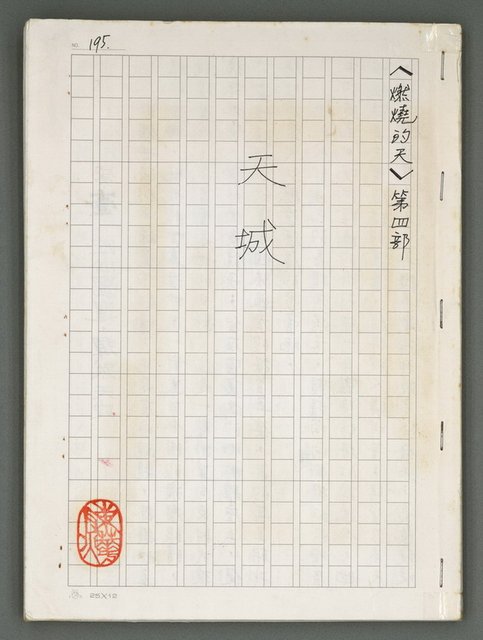 NO. 195.
〈燃燒的天〉第四部
天城
25X12